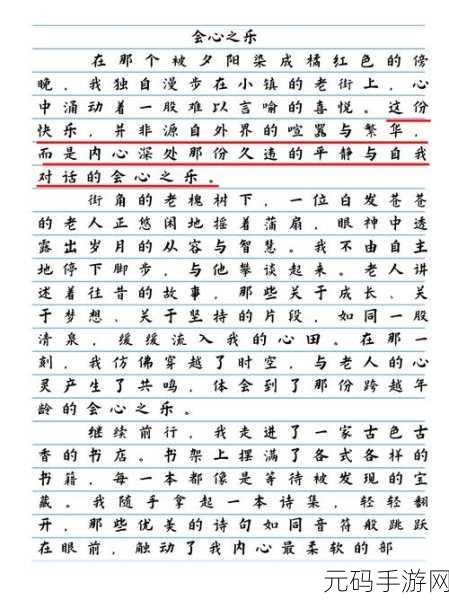 会心之乐
在那个被夕阳染成橘红色的傍
晚，我独自漫步在小镇的老街上，心
中涌动着一股难以言喻的喜悦。这份
快乐，并非源自外界的喧嚣与繁华，
而是内心深处那份久违的平静与自我
对话的会心之乐。
街角的老槐树下，一位白发苍苍
的老人正悠闲地摇着蒲扇，眼神中透
露出岁月的从容与智慧。我不由自主
地停下脚步，与他攀谈起来。老人讲
述着往昔的故事，那些关于成长、关
于梦想、关于坚持的片段，如同一股
清泉，缓缓流入我的心田。在那一
刻，我仿佛穿越了时空，与老人的心
灵产生了共鸣，体会到了那份跨越年
龄的会心之乐。
继续前行，我走进了一家古色古
香的书店。书架上摆满了各式各样的
书籍，每一本都像是等待被发现的宝
藏。我随手拿起一本诗集，轻轻翻
开，那些优美的诗句如同音符般跳跃
在眼前，触动了我内心最柔软的部
元码手游网